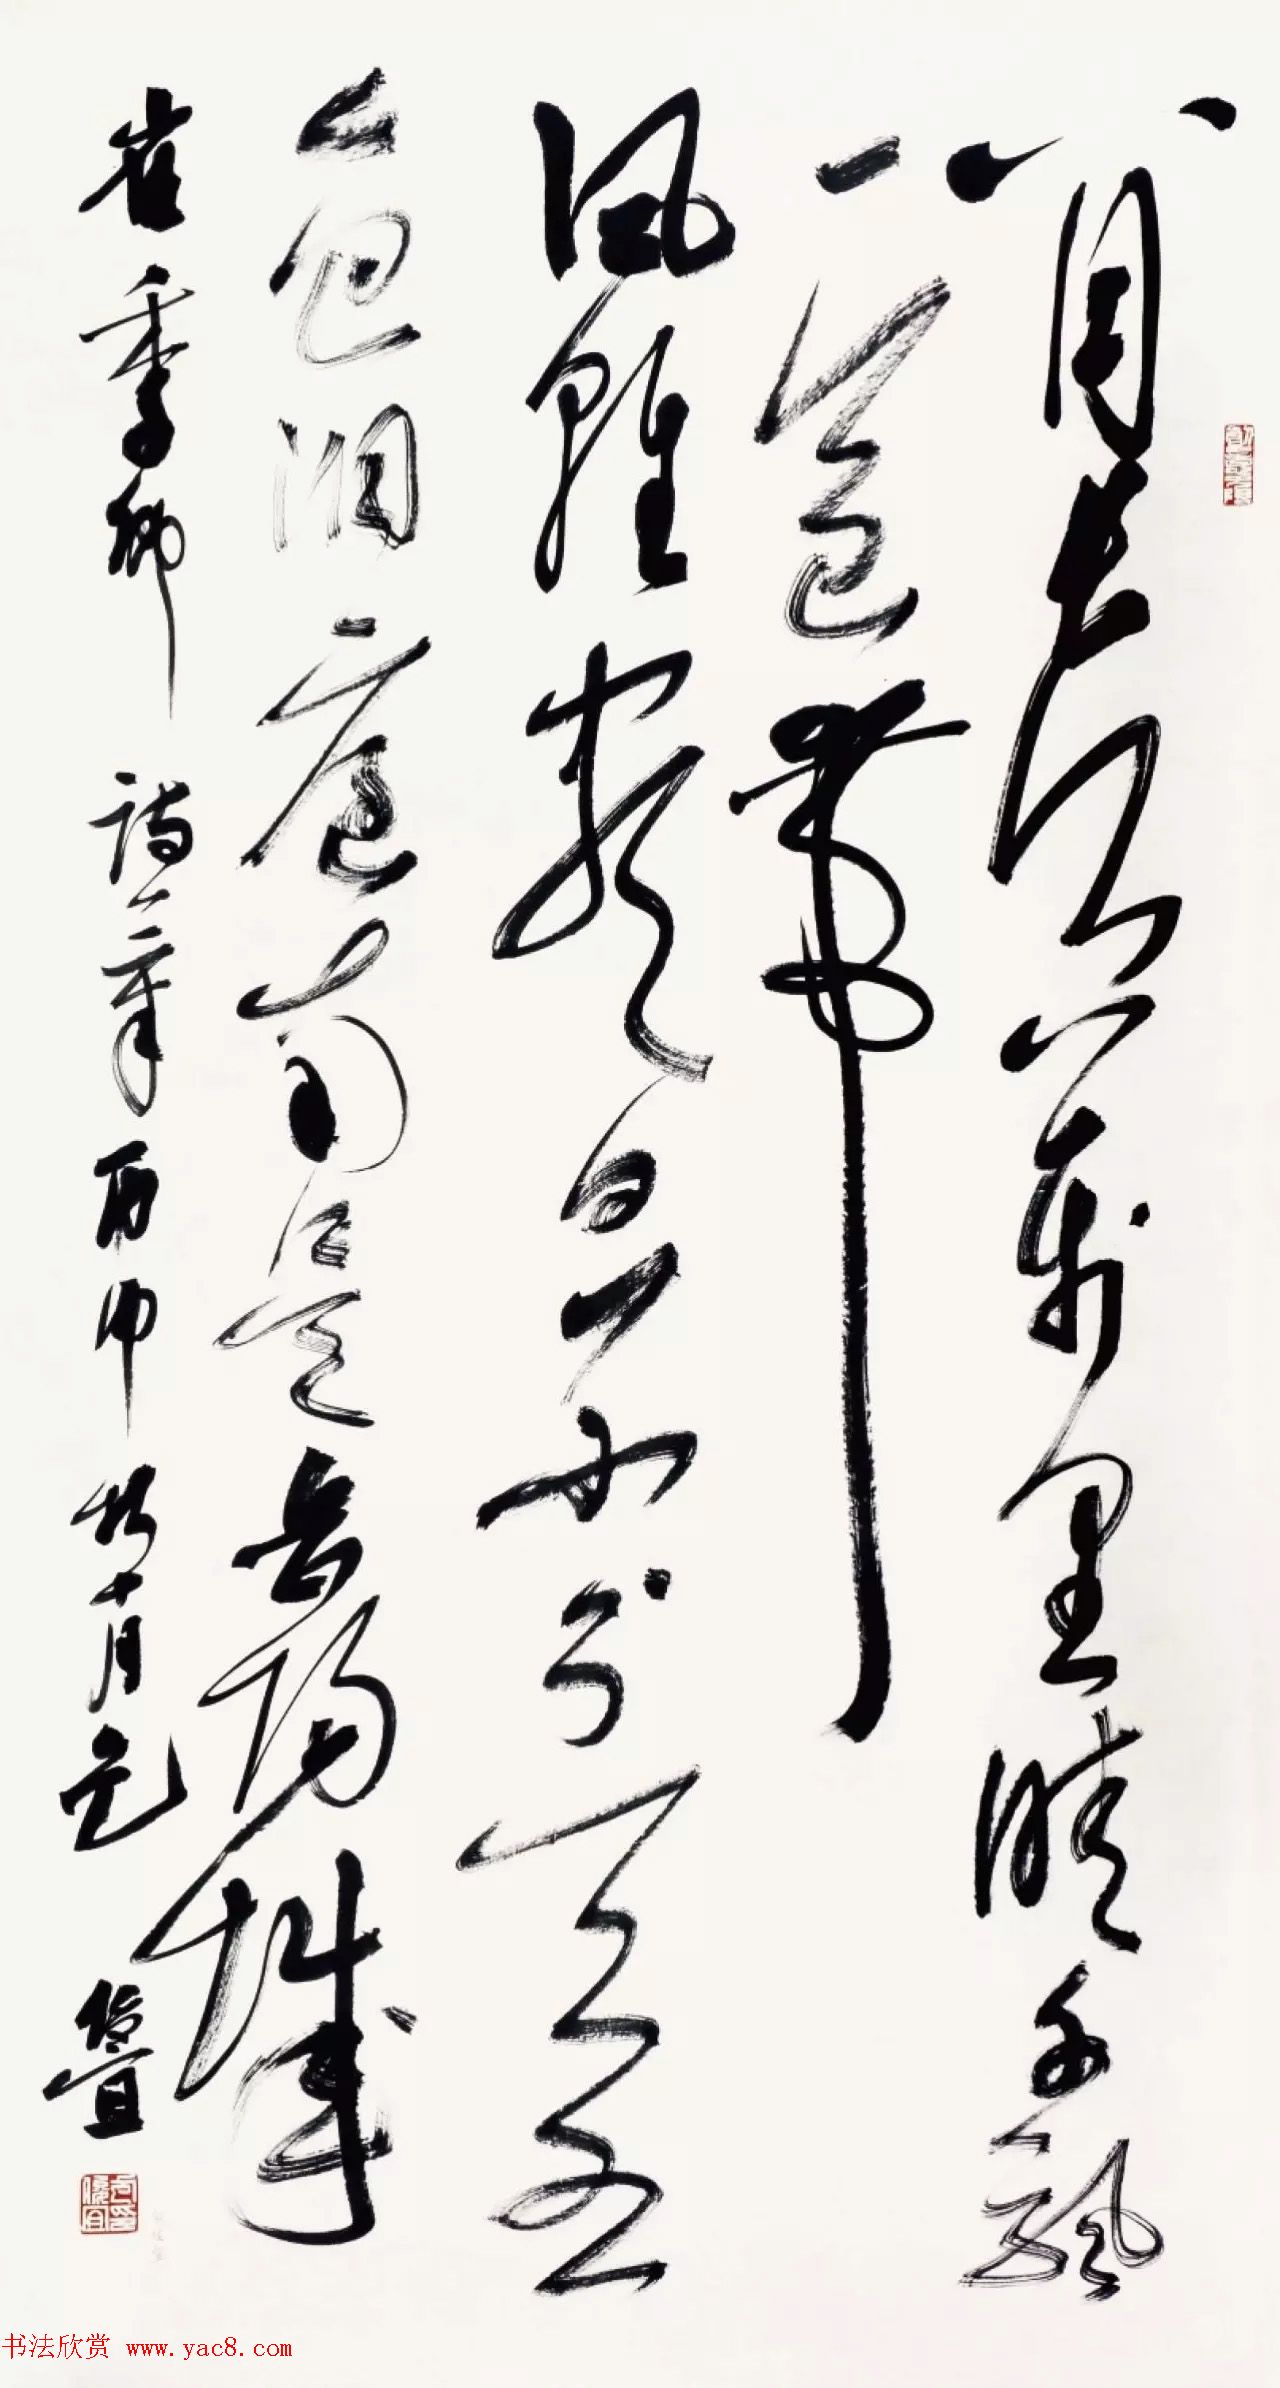 八月長江萬里晴千帆
一道帶
風輕盡日不分天水
色洞庭南是岳陽城
崔季卿詩一章丙申秋十月包俊宜
书法欣赏 www.yac8.com